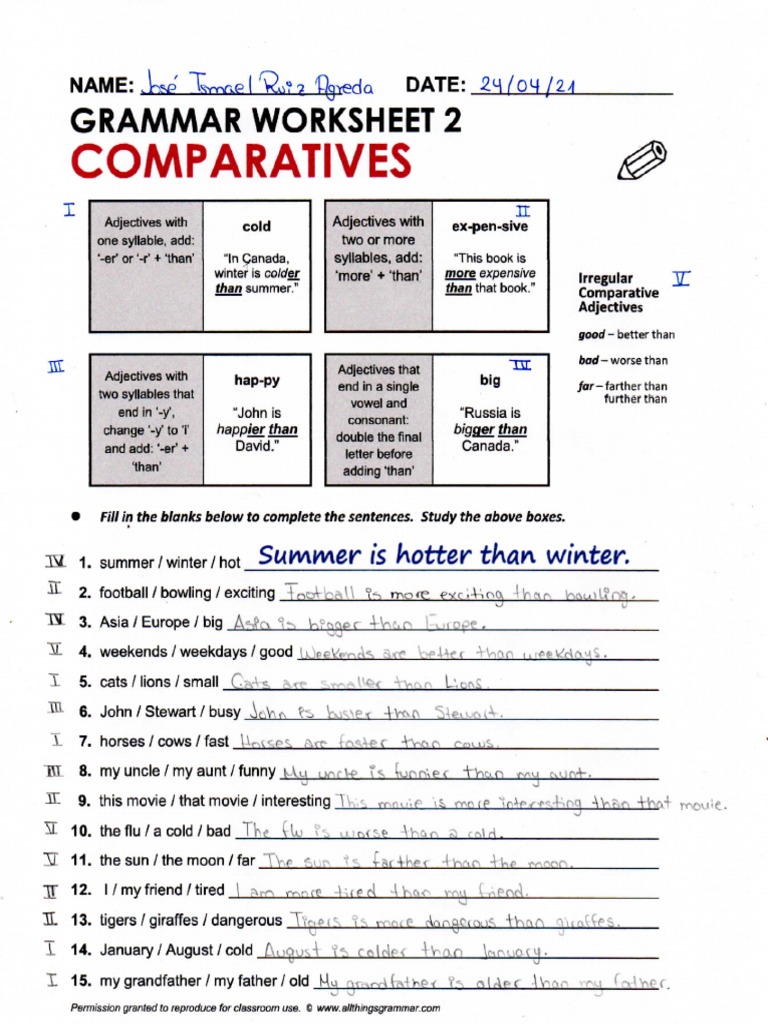 NAME: José Ismael Ruiz Agreda DATE: 24/04/21
GRAMMAR WORKSHEET 2
COMPARATIVES
I
Adjectives with
one syllable, add:
'-er' or '-r' + 'than'
cold
"In Canada,
winter is colder
than summer."
II
Adjectives with
two or more
syllables, add:
'more' + 'than'
ex-pen-sive
"This book is
more expensive
than that book."
III
Adjectives with
two syllables that
end in '-y',
change '-y' to 'i'
and add: '-er' +
'than'
hap-py
"John is
happier than
David."
IV
Adjectives that
end in a single
vowel and
consonant:
double the final
letter before
adding 'than'
big
"Russia is
bigger than
Canada."
V
Irregular
Comparative
Adjectives
good – better than
bad – worse than
far – farther than
further than
● Fill in the blanks below to complete the sentences. Study the above boxes.
IV 1. summer / winter / hot Summer is hotter than winter.
II 2. football / bowling / exciting Football is more exciting than bowling.
IV 3. Asia / Europe / big Asia is bigger than Europe.
V 4. weekends / weekdays / good Weekends are better than weekdays.
I 5. cats / lions / small Cats are smaller than Lions.
III 6. John / Stewart / busy John is busier than Stewart.
I 7. horses / cows / fast Horses are faster than cows.
III 8. my uncle / my aunt / funny My uncle is funnier than my aunt.
II 9. this movie / that movie / interesting This movie is more interesting than that movie.
V 10. the flu / a cold / bad The flu is worse than a cold.
V 11. the sun / the moon / far The sun is farther than the moon.
II 12. I / my friend / tired I am more tired than my friend.
II 13. tigers / giraffes / dangerous Tigers is more dangerous than giraffes.
I 14. January / August / cold August is colder than January.
I 15. my grandfather / my father / old My grandfather is older than my father.
Permission granted to reproduce for classroom use. © www.allthingsgrammar.com